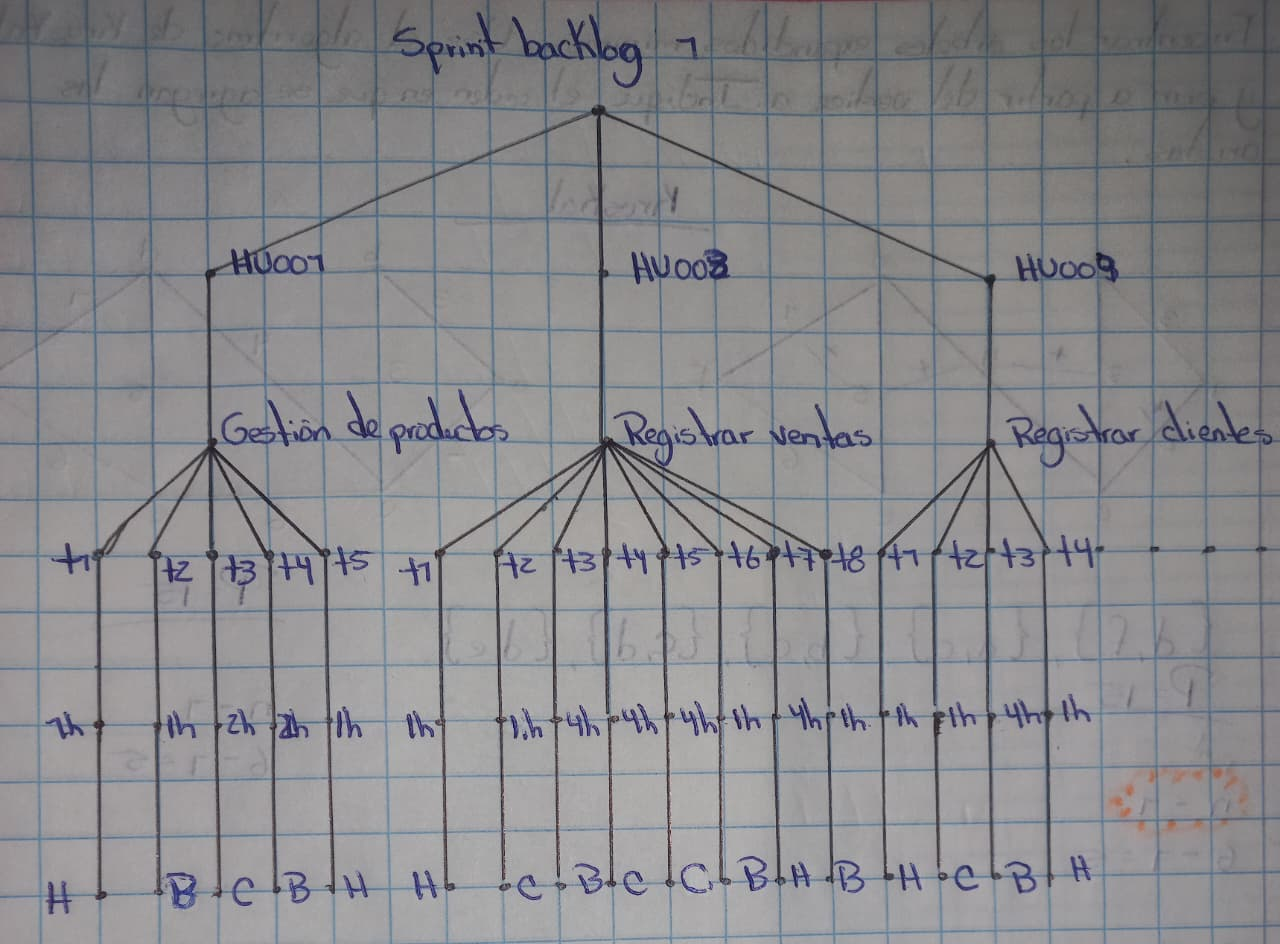 Sprint backlog 1
HU001 HU008 HU009
Gestión de productos Registrar ventas Registrar clientes
t1 t2 t3 t4 t5 t1 t2 t3 t4 t5 t6 t7 t8 t1 t2 t3 t4
1h 1h 2h 2h 1h 1h 1h 4h 4h 4h 1h 4h 1h 1h 1h 4h 1h
H B C B H H C B C C B H B H C B H